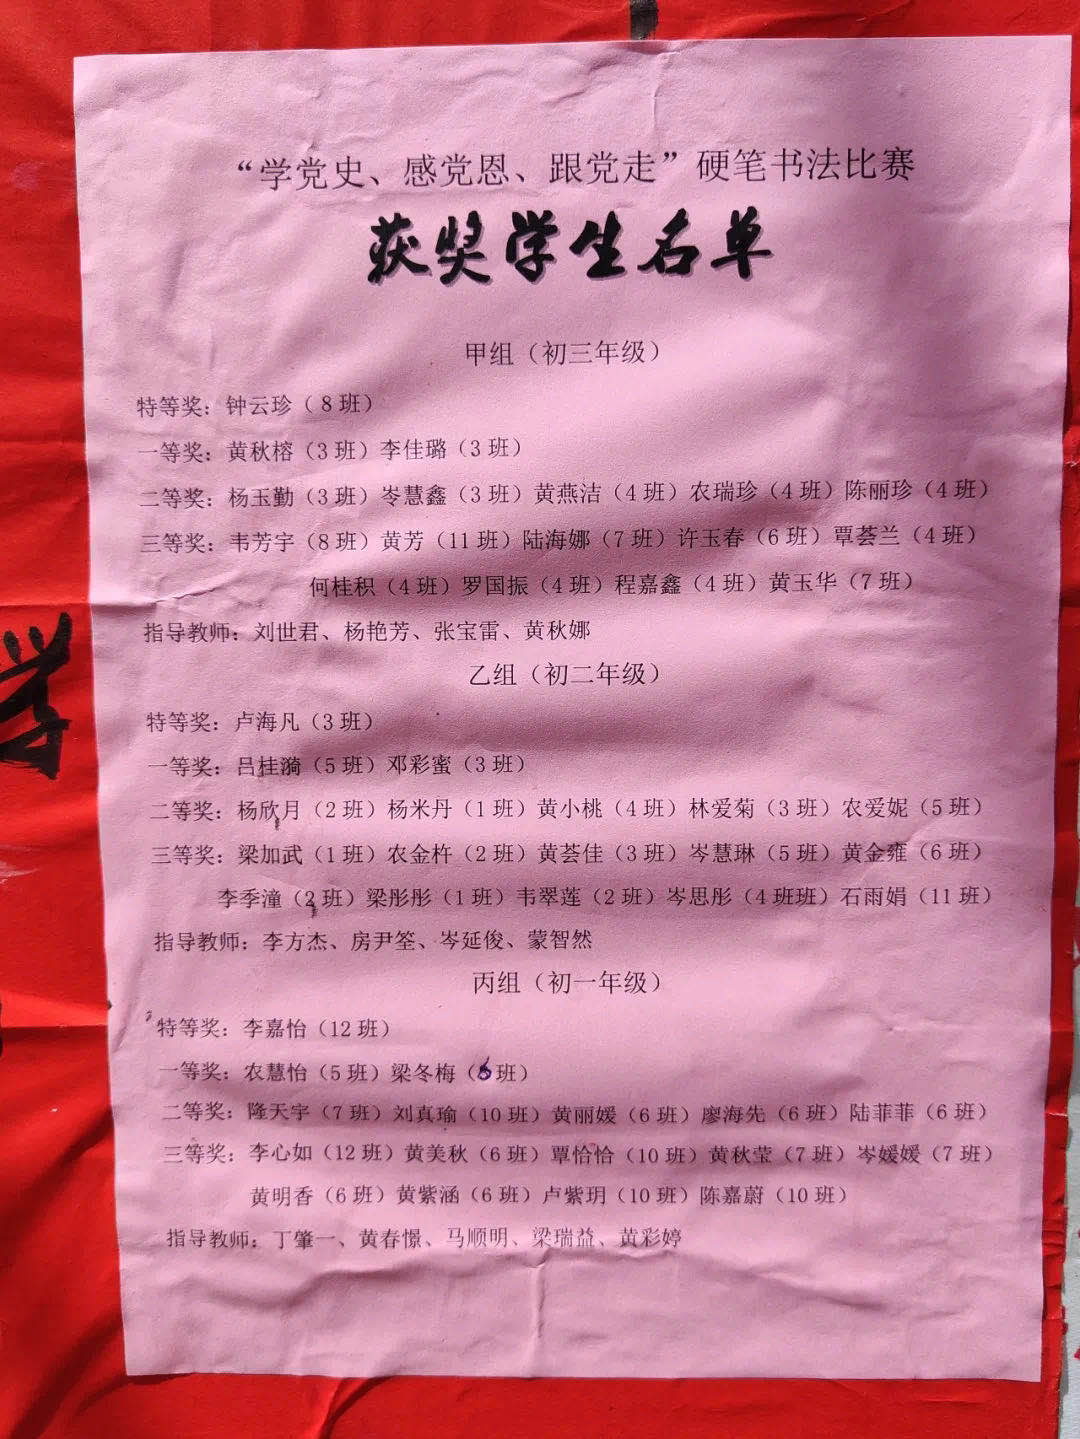 “学党史、感党恩、跟党走”硬笔书法比赛
获奖学生名单
甲组（初三年级）
特等奖：钟云珍（8班）
一等奖：黄秋榕（3班）李佳璐（3班）
二等奖：杨玉勤（3班）岑慧鑫（3班）黄燕洁（4班）农瑞珍（4班）陈丽珍（4班）
三等奖：韦芳宇（8班）黄芳（11班）陆海娜（7班）许玉春（6班）覃荟兰（4班）
何桂积（4班）罗国振（4班）程嘉鑫（4班）黄玉华（7班）
指导教师：刘世君、杨艳芳、张宝雷、黄秋娜
乙组（初二年级）
特等奖：卢海凡（3班）
一等奖：吕桂漪（5班）邓彩蜜（3班）
二等奖：杨欣月（2班）杨米丹（1班）黄小桃（4班）林爱菊（3班）农爱妮（5班）
三等奖：梁加武（1班）农金杵（2班）黄荟佳（3班）岑慧琳（5班）黄金雍（6班）
李季潼（2班）梁彤彤（1班）韦翠莲（2班）岑思彤（4班班）石雨娟（11班）
指导教师：李方杰、房尹筌、岑延俊、蒙智然
丙组（初一年级）
特等奖：李嘉怡（12班）
一等奖：农慧怡（5班）梁冬梅（班）
二等奖：隆天宇（7班）刘真瑜（10班）黄丽媛（6班）廖海先（6班）陆菲菲（6班）
三等奖：李心如（12班）黄美秋（6班）覃恰恰（10班）黄秋莹（7班）岑媛媛（7班）
黄明香（6班）黄紫涵（6班）卢紫玥（10班）陈嘉蔚（10班）
指导教师：丁肇一、黄春憬、马顺明、梁瑞益、黄彩婷
学